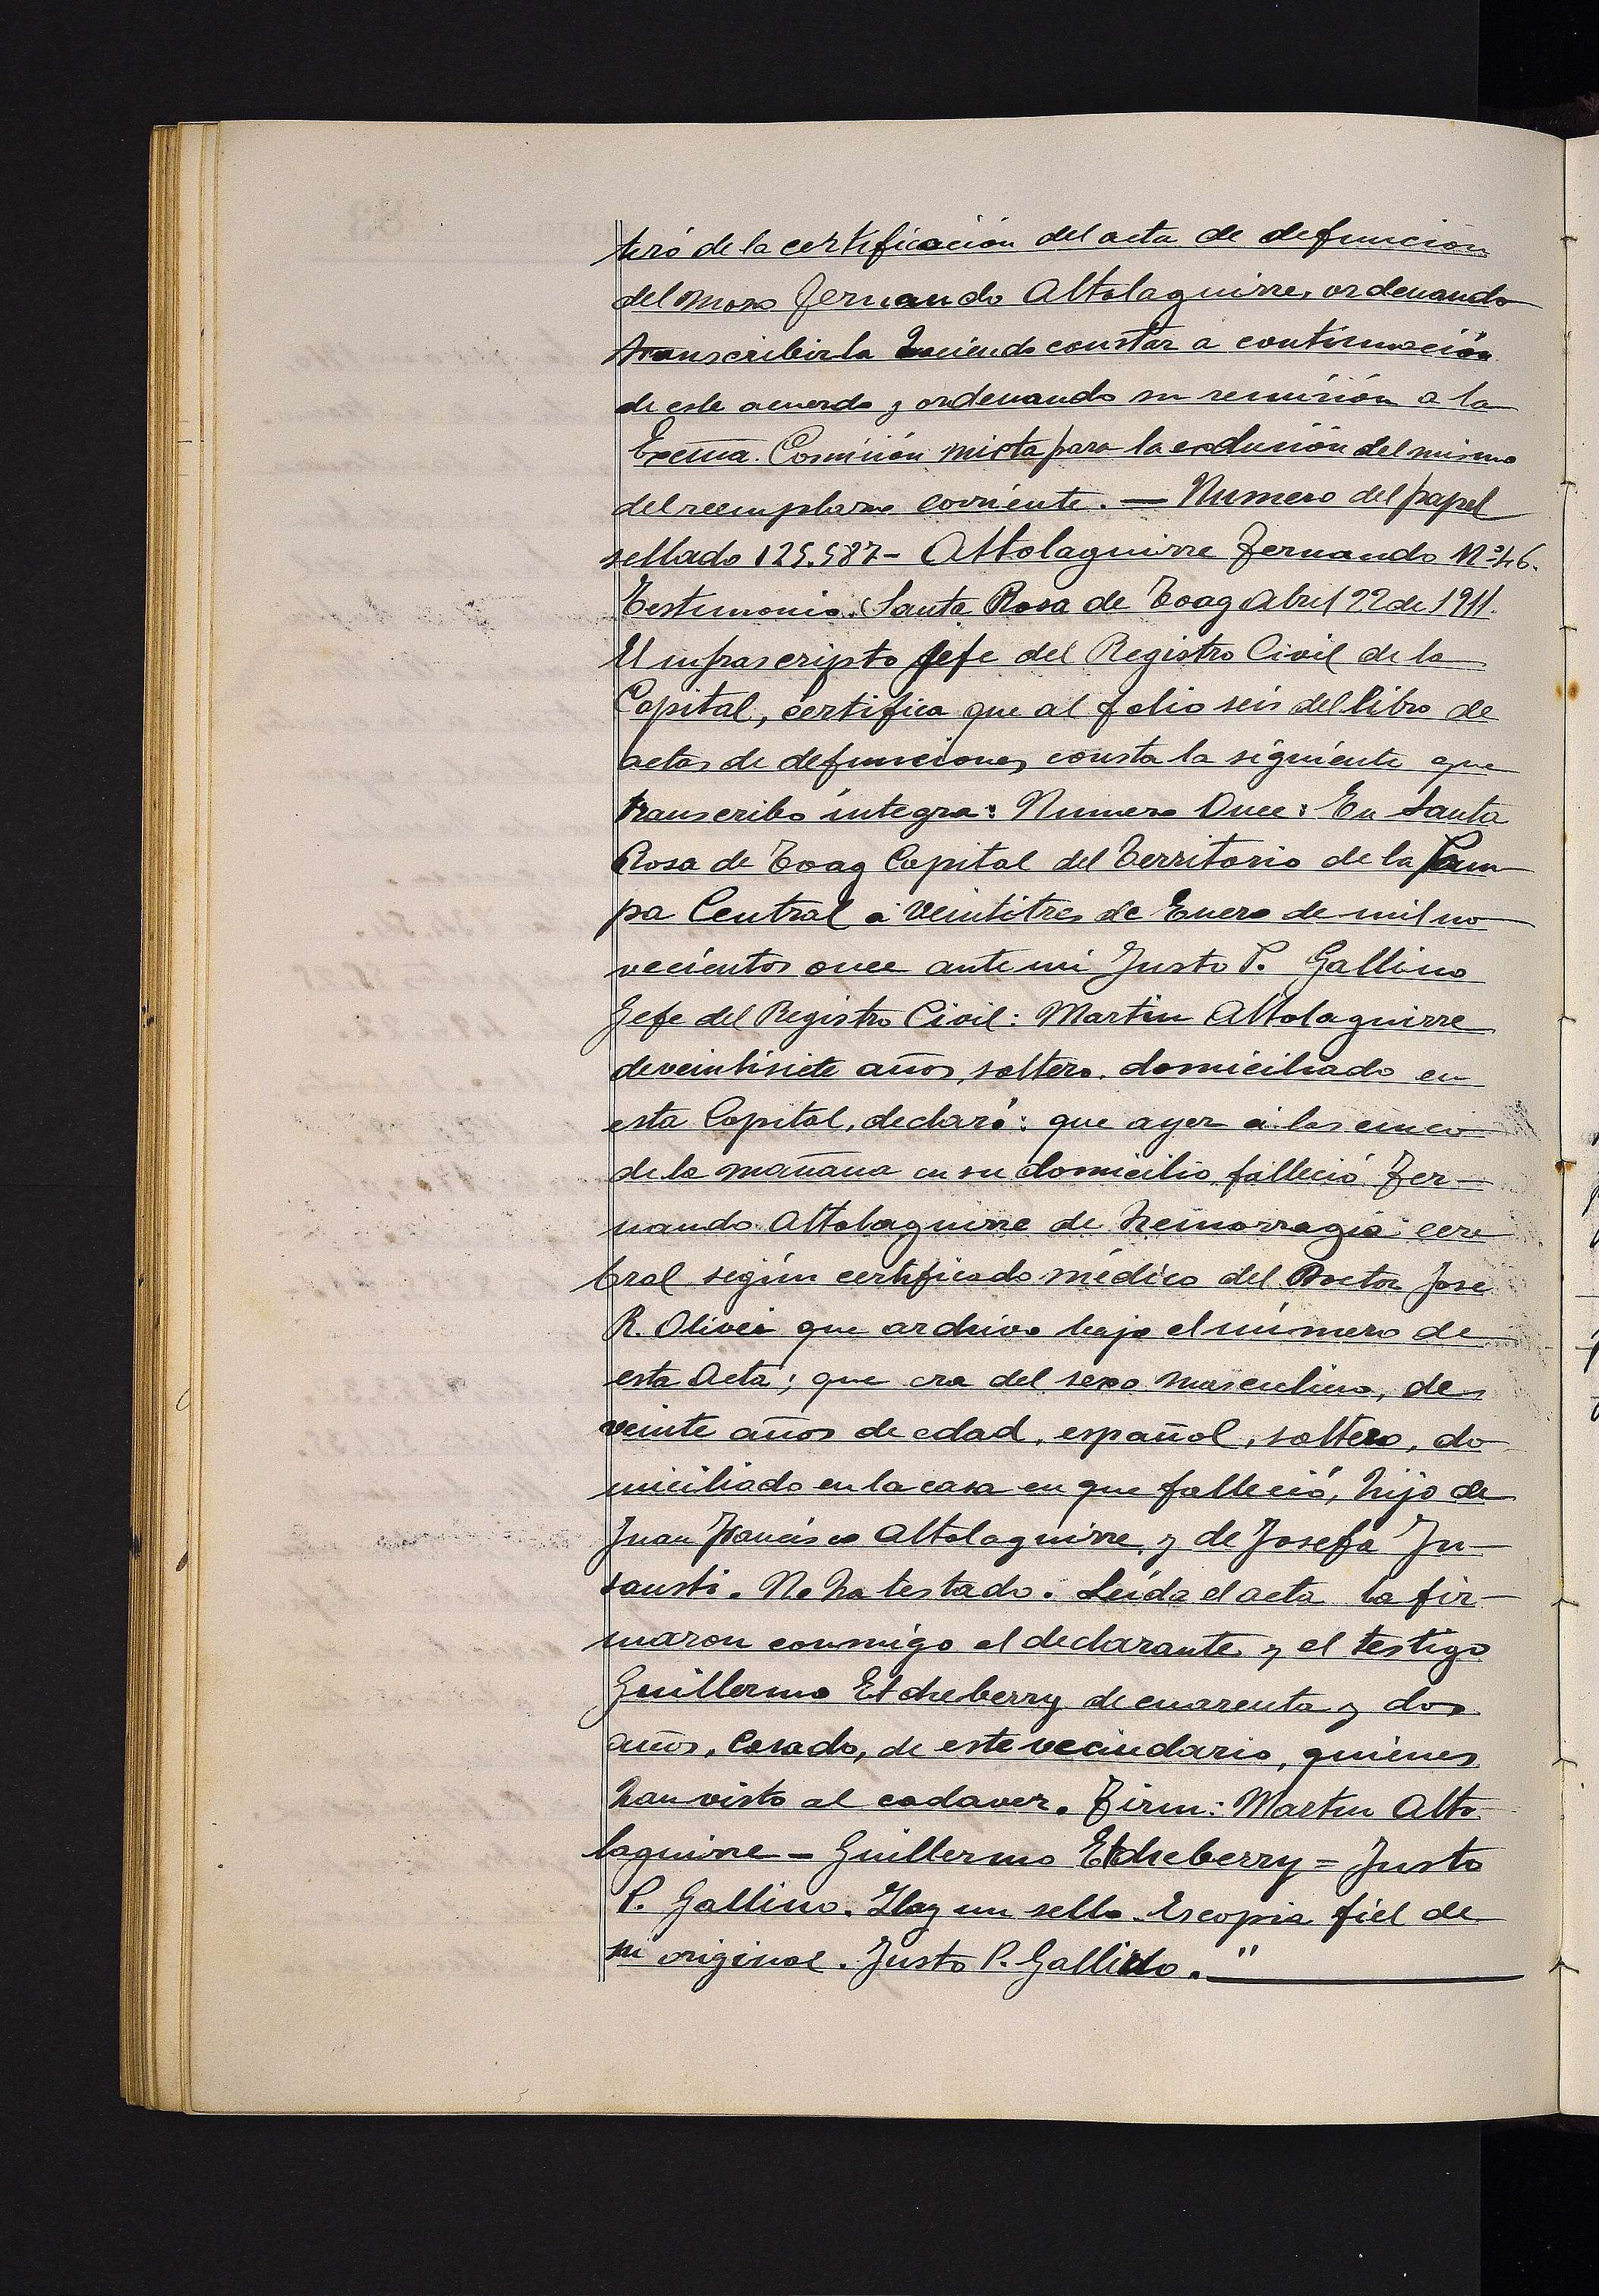 teró de la certificación del acta de defunción
del mozo Fernando Altolaguirre, ordenando
transcribirla haciendo constar a continuación
de este acuerdo y ordenando su remisión a la
Excma. Comisión mixta para la exclusión del mismo
del reemplazo corriente. — Numero del papel
sellado 125.587 - Altolaguirre Fernando Nº 46.
Testimonio. Santa Rosa de Toag Abril 22 de 1911.
El infrascripto Jefe del Registro Civil de la
Capital, certifica que al folio seis del libro de
actas de defunciones consta la siguiente que
transcribo íntegra: Numero Once: En Santa
Rosa de Toag Capital del Territorio de la Pam-
pa Central á veintitres de Enero de mil no-
vecientos once ante mi Justo P. Gallino
Jefe del Registro Civil: Martin Altolaguirre
de veintisiete años, soltero, domiciliado en
esta Capital, declaró: que ayer á las cinco
de la mañana en su domicilio falleció Fer-
nando Altolaguirre de hemorragia cere
bral según certificado médico del Doctor Jose
R. Oliver que archivo bajo el número de
esta Acta; que era del sexo masculino, de
veinte años de edad, español, soltero, do
miciliado en la casa en que falleció, hijo de
Juan Francisco Altolaguirre y de Josefa In-
sausti. No ha testado. Leída el acta la fir-
maron conmigo el declarante y el testigo
Guillermo Etcheberry de cuarenta y dos
años, Casado, de este vecindario, quienes
han visto al cadaver. Firm: Martin Alto-
laguirre - Guillermo Etcheberry = Justo
P. Gallino. Hay un sello. Es copia fiel de
su original. Justo P. Gallino. "